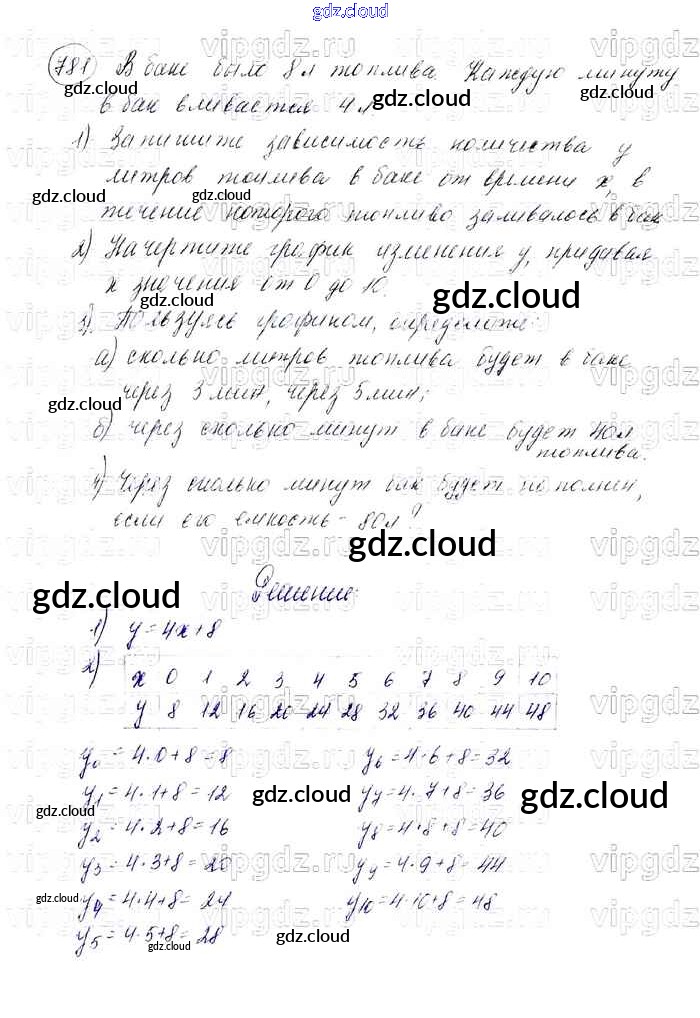 gdz.cloud
781 В баке было 8 л топлива. Каждую минуту
в бак вливается 4 л
1) Запишите зависимость количества у
литров топлива в баке от времени х, в
течение которого топливо заливалось в бак
2) Начертите график изменения у, придавая
х значения от 0 до 10.
3) Пользуясь графиком, определите:
а) сколько литров топлива будет в баке
через 3 мин, через 5 мин;
б) через сколько минут в баке будет 40 л
топлива.
4) Через сколько минут бак будет наполнен,
если его емкость - 80 л?
Решение:
1) y = 4x + 8
2)
x 0 1 2 3 4 5 6 7 8 9 10
y 8 12 16 20 24 28 32 36 40 44 48
y₀ = 4·0+8 = 8 y₆ = 4·6+8 = 32
y₁ = 4·1+8 = 12 y₇ = 4·7+8 = 36
y₂ = 4·2+8 = 16 y₈ = 4·8+8 = 40
y₃ = 4·3+8 = 20 y₉ = 4·9+8 = 44
y₄ = 4·4+8 = 24 y₁₀ = 4·10+8 = 48
y₅ = 4·5+8 = 28
gdz.cloud